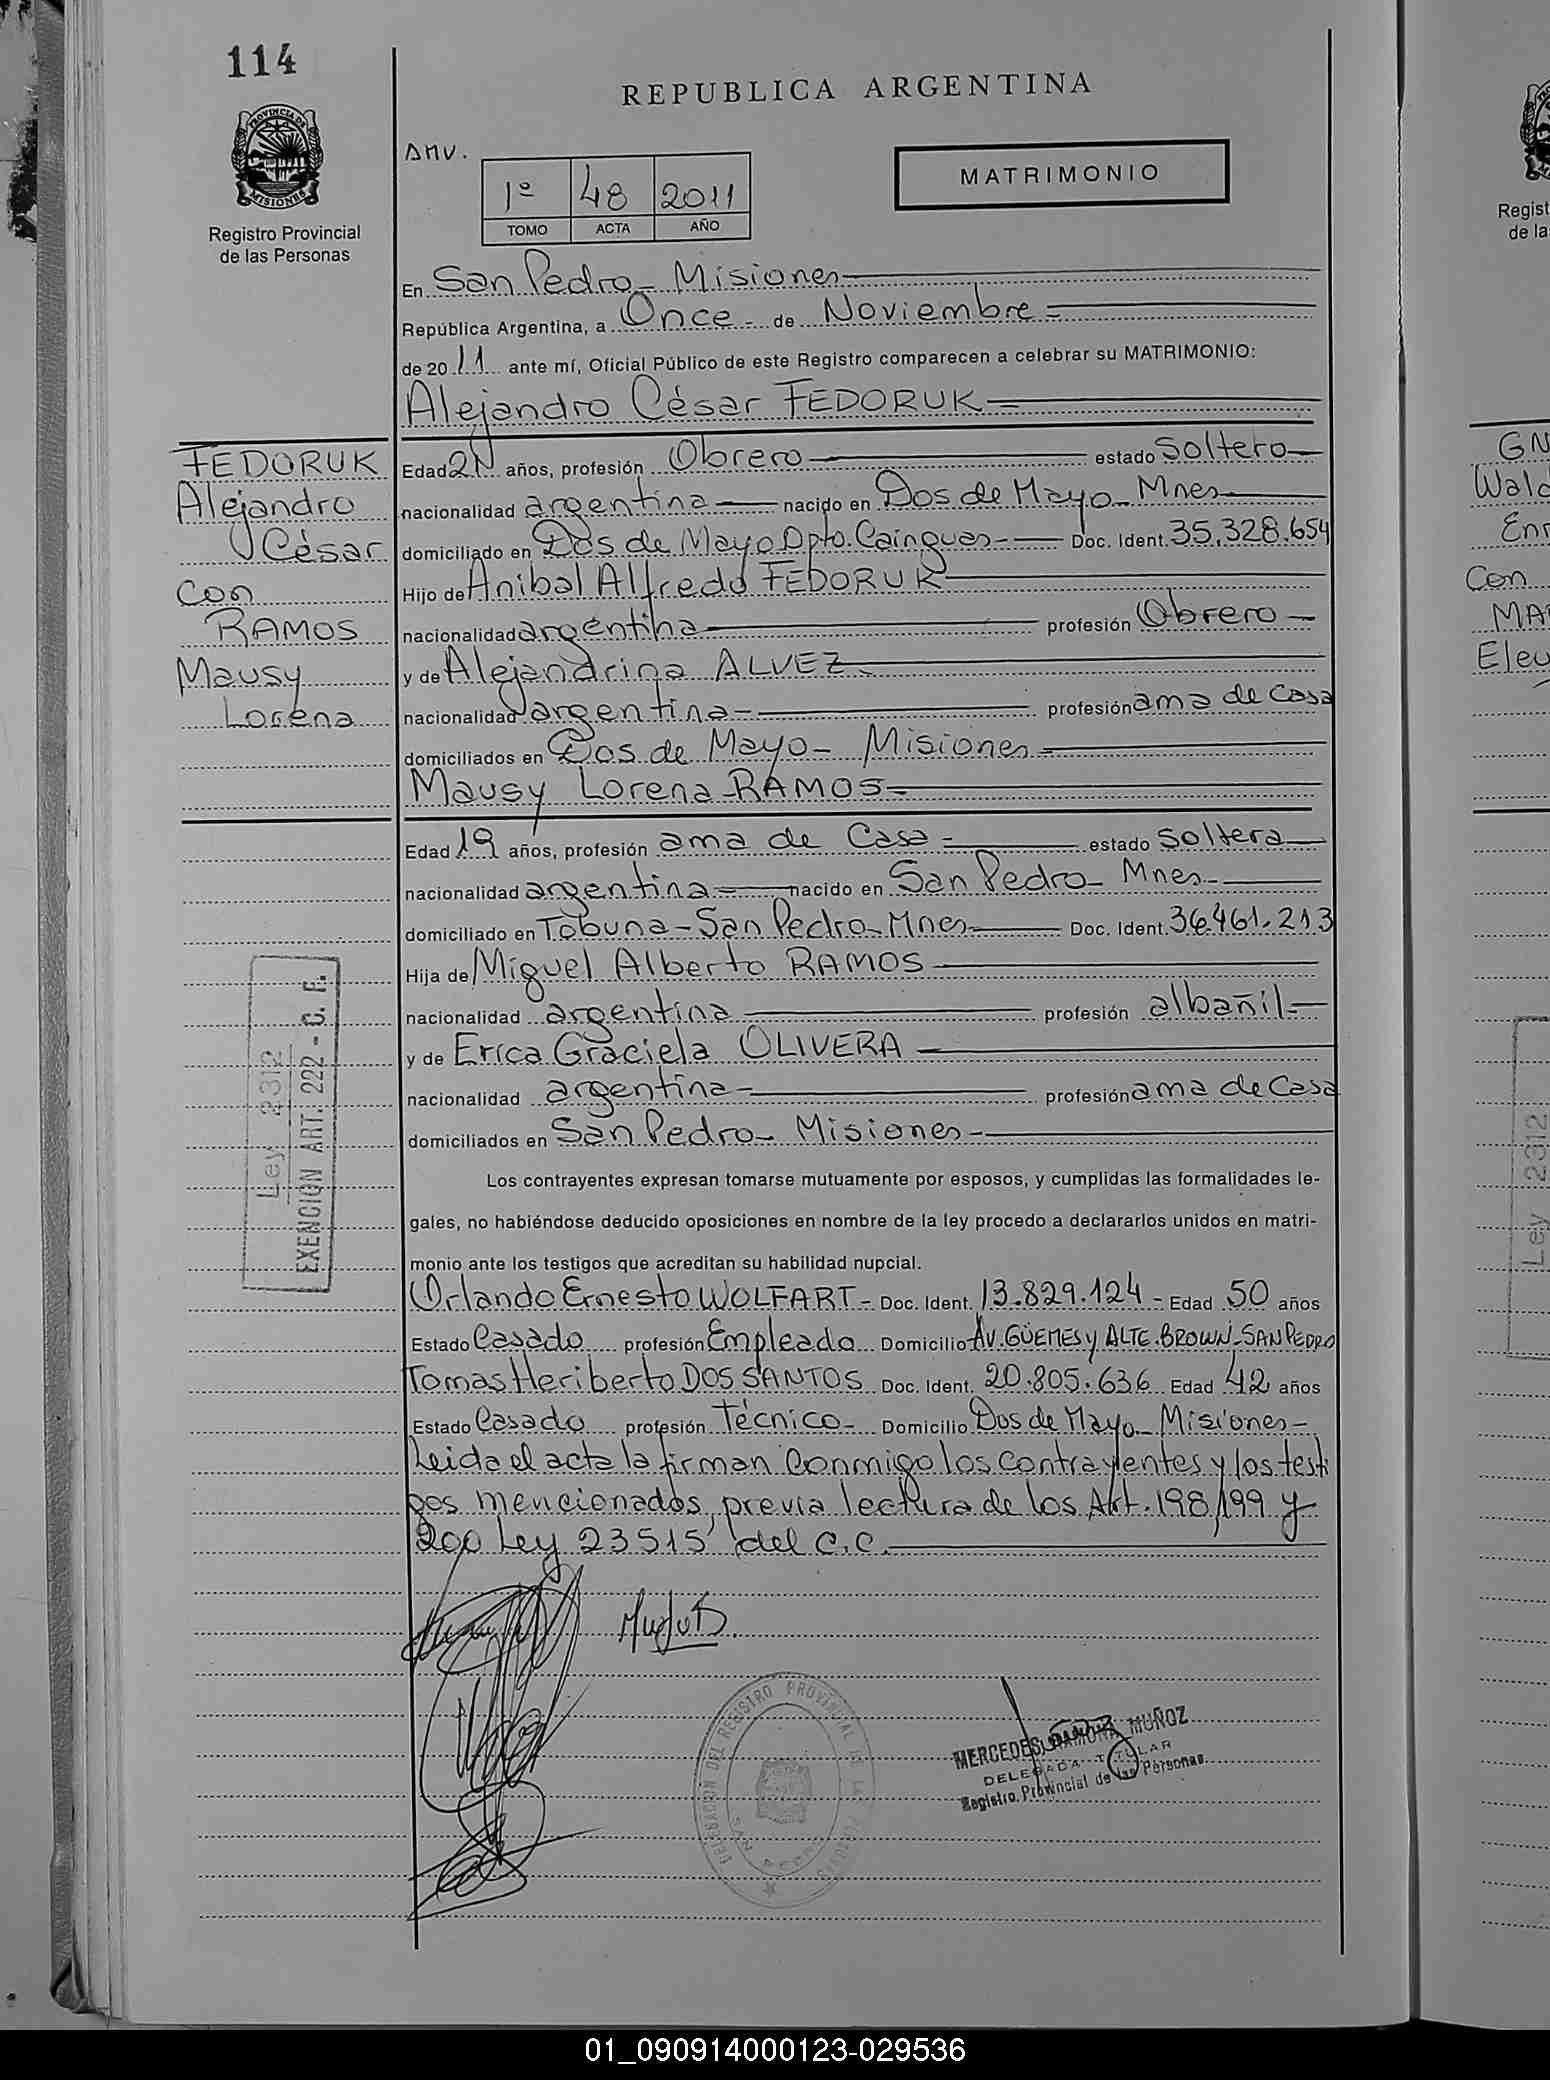 114
REPUBLICA ARGENTINA
PROVINCIA DE
MISIONES
Registro Provincial
de las Personas
DMV.
1º 48 2011
TOMO ACTA AÑO
MATRIMONIO
En San Pedro - Misiones
República Argentina, a Once - de Noviembre
de 2011 ante mí, Oficial Público de este Registro comparecen a celebrar su MATRIMONIO:
Alejandro César FEDORUK
FEDORUK
Alejandro
César
con
RAMOS
Mausy
Lorena
Edad 21 años, profesión Obrero estado Soltero
nacionalidad argentina nacido en Dos de Mayo - Mnes
domiciliado en Dos de Mayo Dpto. Cainguas - Doc. Ident. 35.328.654
Hijo de Anibal Alfredo FEDORUK
nacionalidad argentina profesión Obrero
y de Alejandrina ALVEZ
nacionalidad argentina profesión ama de casa
domiciliados en Dos de Mayo - Misiones
Mausy Lorena RAMOS
Edad 19 años, profesión ama de Casa estado soltera
nacionalidad argentina nacido en San Pedro - Mnes
domiciliado en Tobuna - San Pedro - Mnes Doc. Ident. 36.461.213
Hija de Miguel Alberto RAMOS
nacionalidad argentina profesión albañil
y de Erica Graciela OLIVERA
nacionalidad argentina profesión ama de Casa
domiciliados en San Pedro - Misiones
Ley 2312
EXENCION ART. 222 - C. F.
Los contrayentes expresan tomarse mutuamente por esposos, y cumplidas las formalidades le-
gales, no habiéndose deducido oposiciones en nombre de la ley procedo a declararlos unidos en matri-
monio ante los testigos que acreditan su habilidad nupcial.
Orlando Ernesto WOLFART - Doc. Ident. 13.829.124 - Edad 50 años
Estado Casado profesión Empleado Domicilio AV. GÜEMES y ALTE. BROWN - SAN PEDRO
Tomas Heriberto DOS SANTOS Doc. Ident. 20.805.636 Edad 42 años
Estado Casado profesión Técnico - Domicilio Dos de Mayo - Misiones
Leida el acta la firman Conmigo los contrayentes y los testi
gos mencionados, previa lectura de los Art. 198, 199 y
200 Ley 23515 del C.C.
DELEGACION DEL REGISTRO PROVINCIAL DE LAS PERSONAS
SAN PEDRO
MERCEDES RAMONA MUÑOZ
DELEGADA TITULAR
Registro Provincial de las Personas
Regist
de la
GN
Wald
Enr
Con
MA
Eleu
Ley 2312
01_090914000123-029536